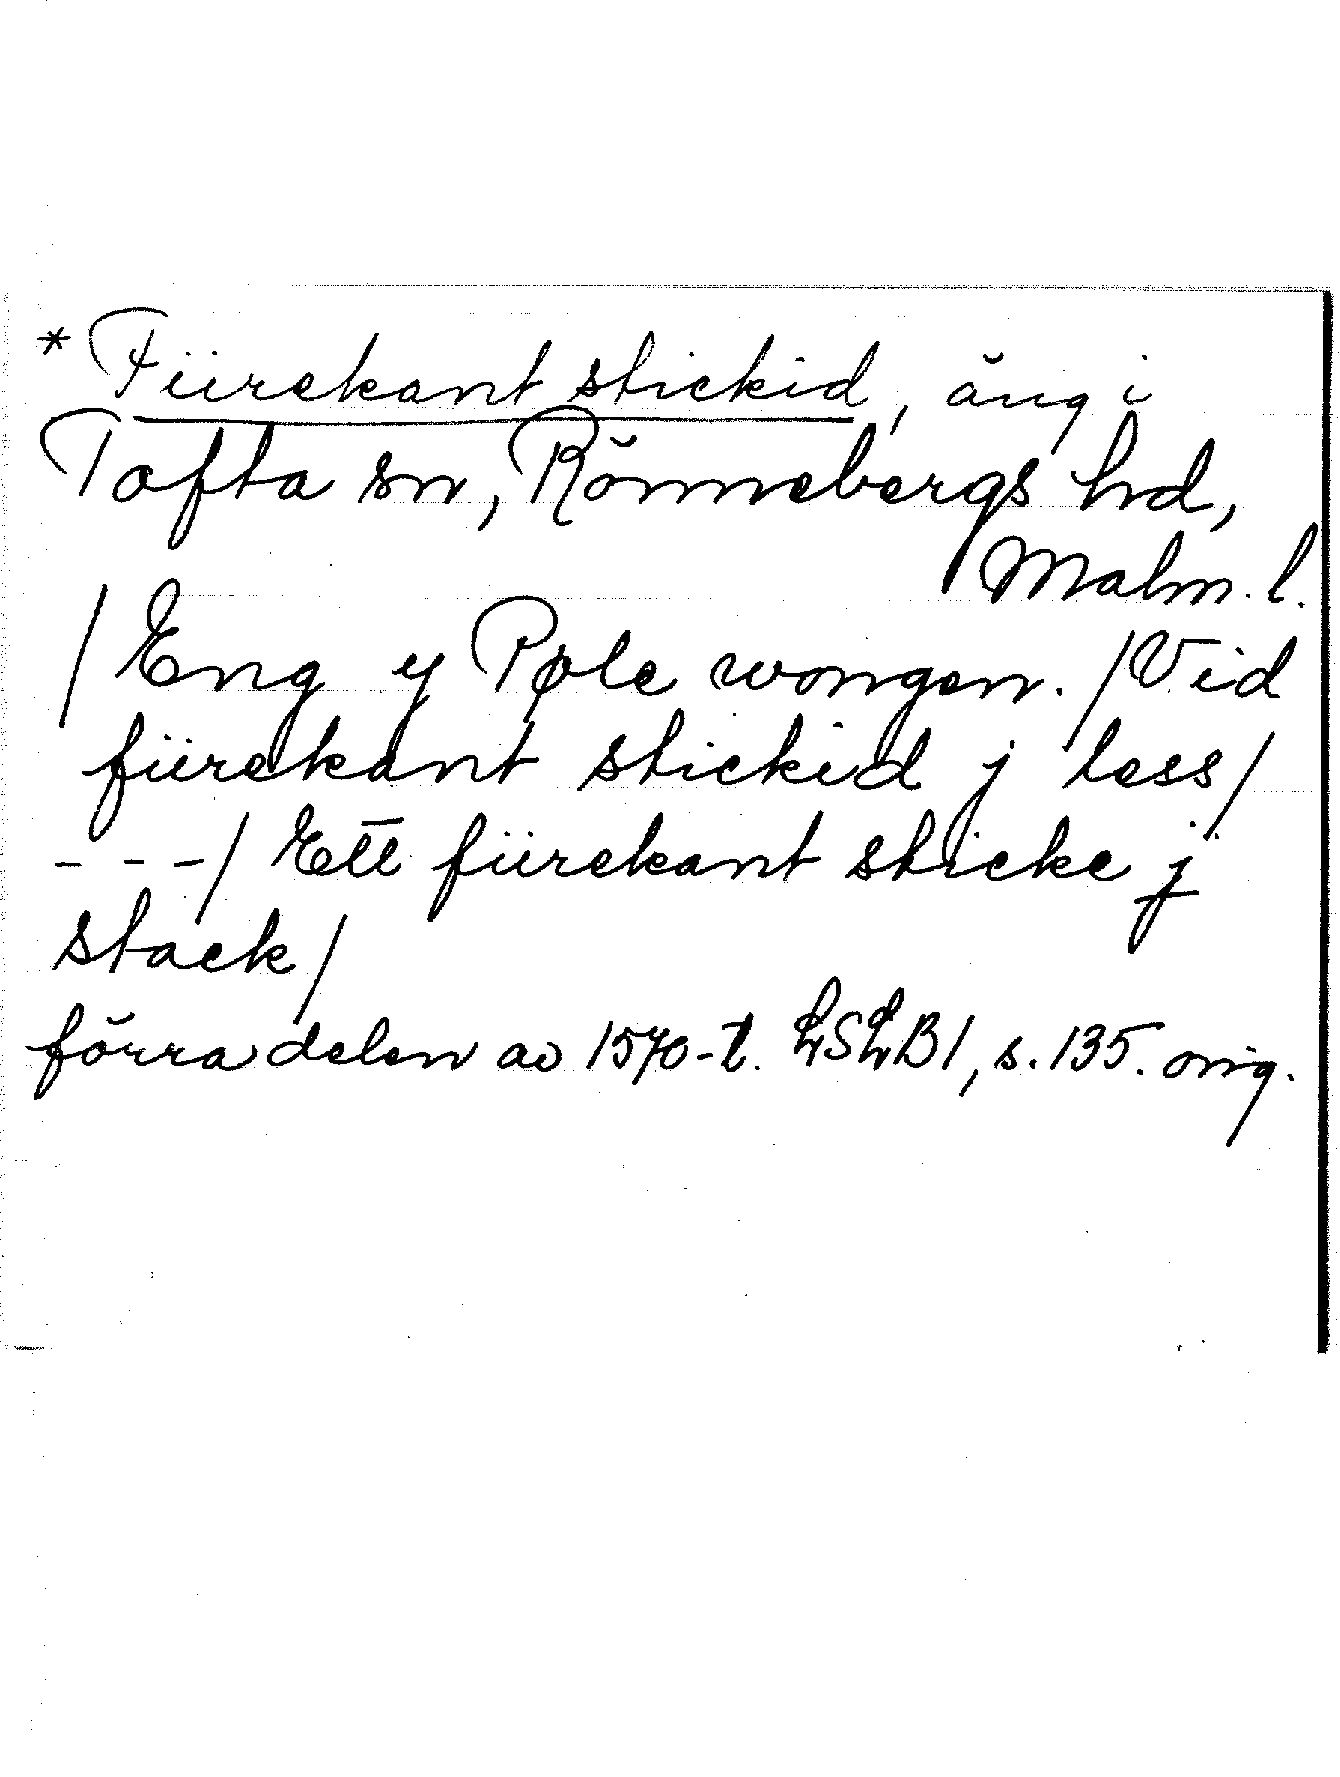 * Fiirekant stickid, äng i
Tofta sn, Rönnebergs hd,
Malm. l.
/ Eng y Pøle wongen. / Vid
fiirekant stickid j less /
- - - / Ett fiirekant sticke j
stack /
förra delen av 1570-t. LSLB1, s. 135. orig.